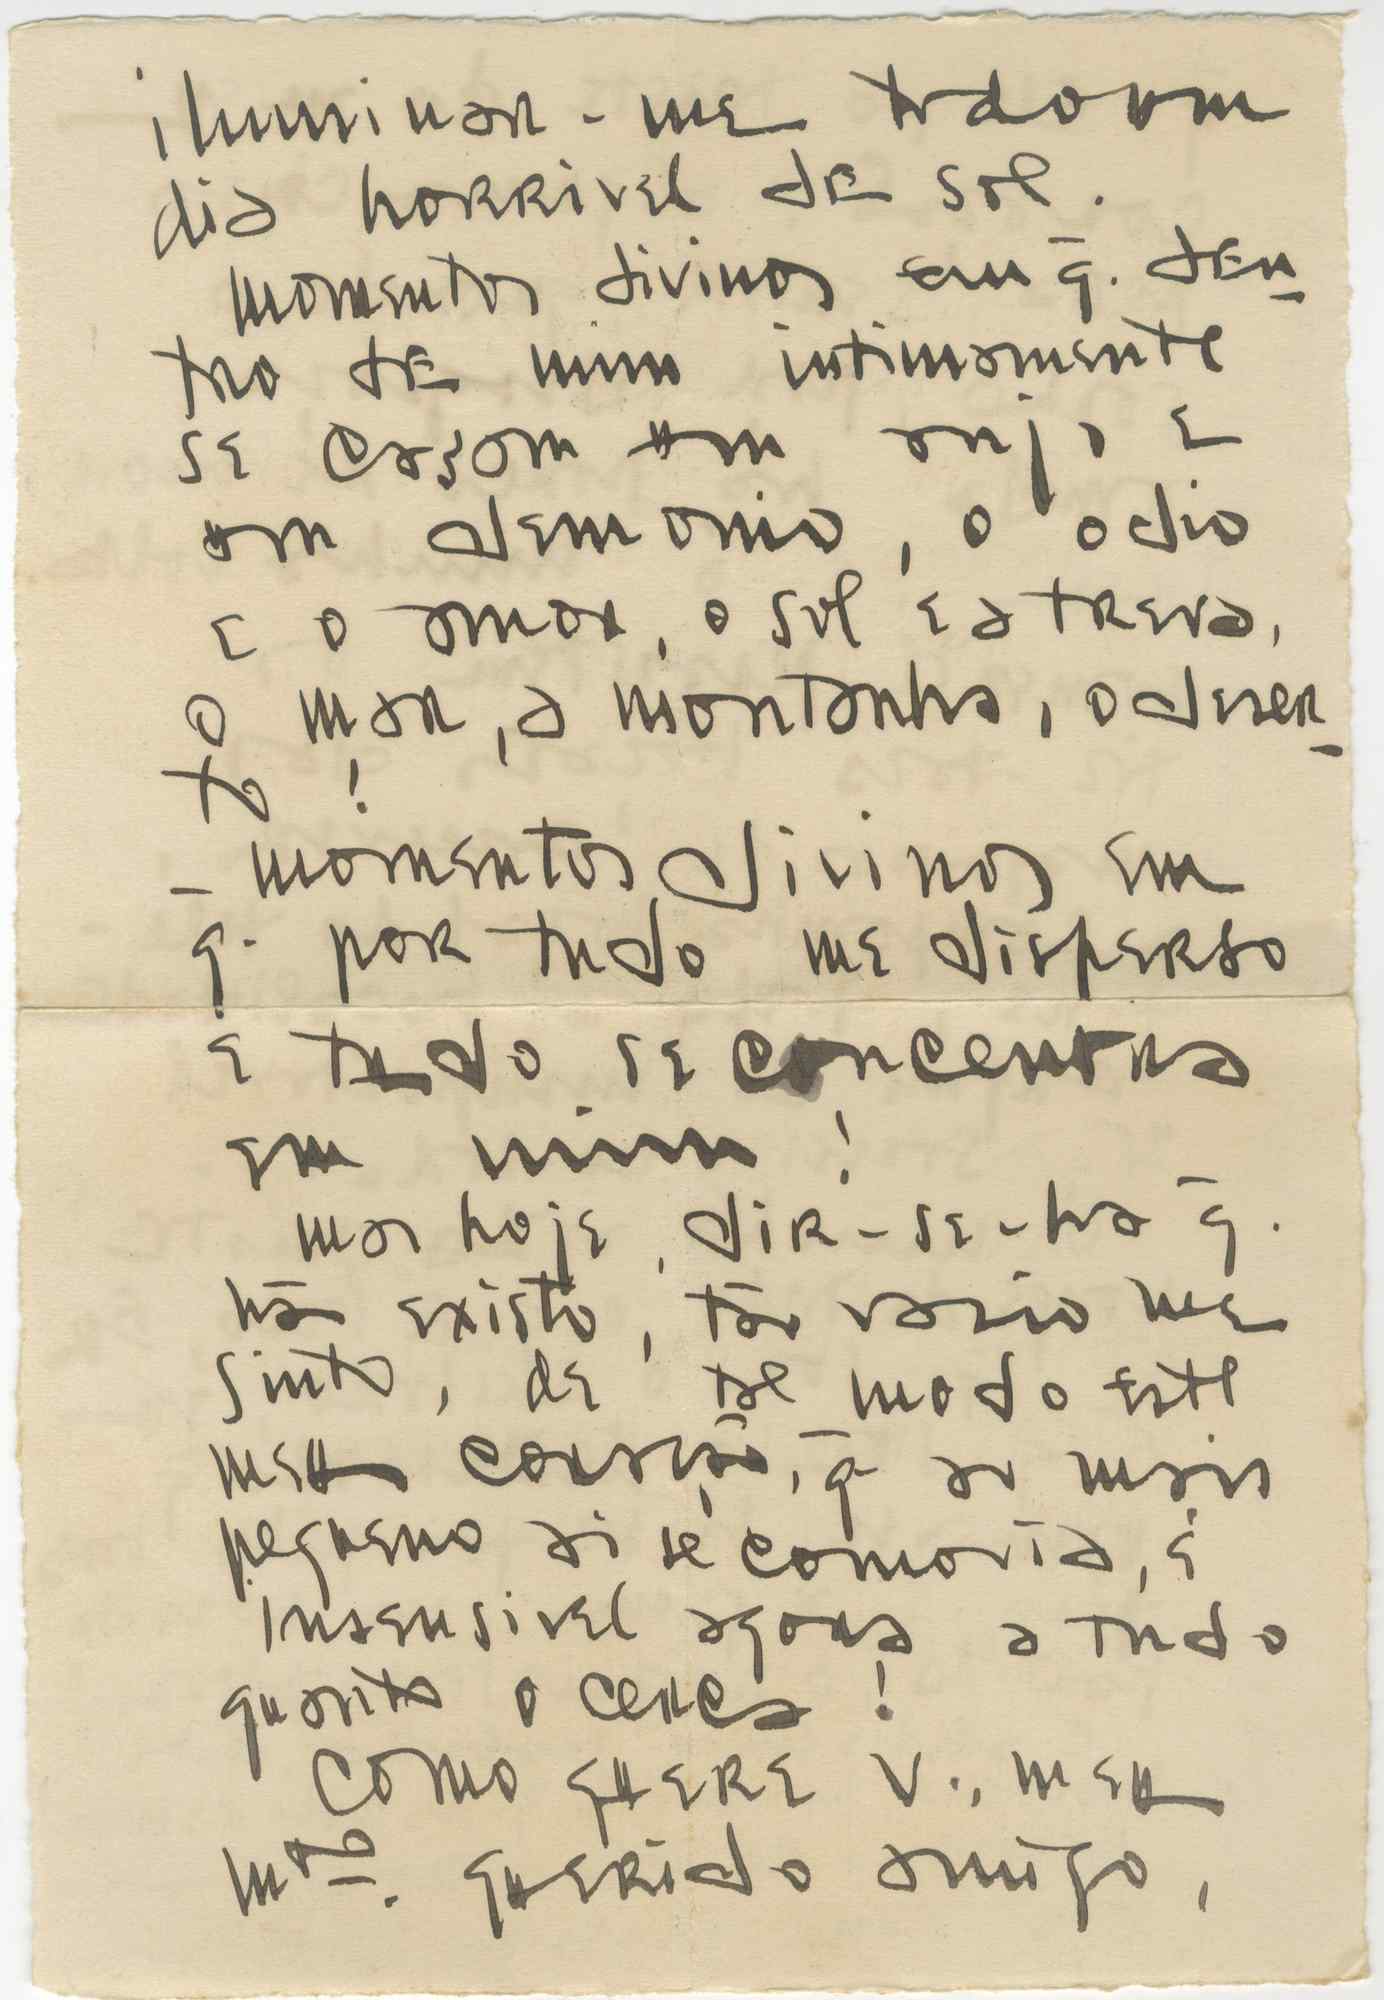 iluminar-me todo um
dia horrivel de sol.
momentos divinos em q̄. den-
tro de mim intimamente
se casam um anjo e
um demonio, o odio
e o amor, o sol e a treva,
o mar, a montanha, o deser-
to!
– momentos divinos em
q. por tudo me disperso
e tudo se concentra
em mim!
mas hoje, dir-se-ha q̄.
não existo, tão vasio me
sinto, de tal modo este
meu coração, q̄ ao mais
pequeno ai se comovia, é
insensivel agora a tudo
quanto o cerca!
Como quere V., meu
mto. querido amigo,